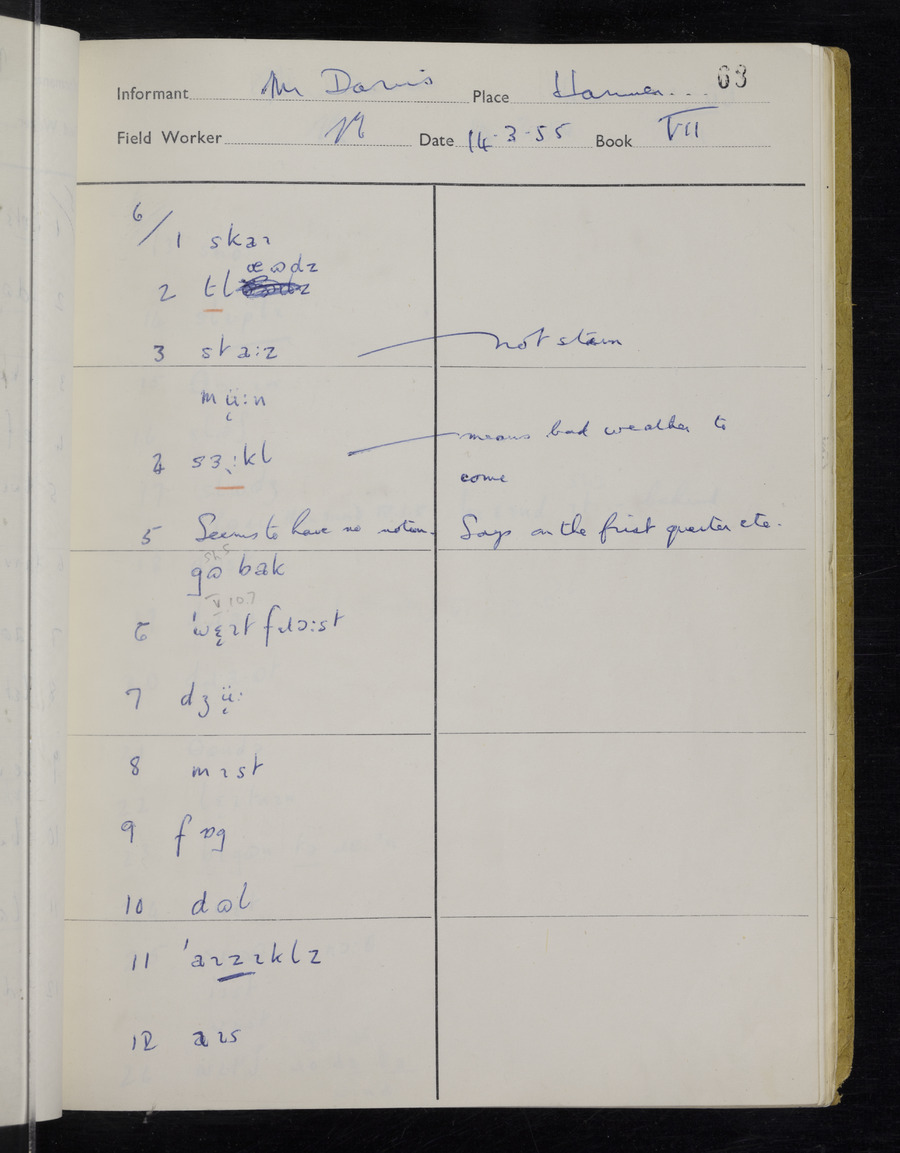 63
Informant Mr Davis Place Hanmer...
Field Worker Date 14-3-55 Book VII
6/1 skaɪ
2 tlæɷdz
3 staːz not starn
mü̜ːn
4 sɜːkl means bad weather to come
5 Seems to have no notion. Says on the first quarter etc.
gɷ bak
V.10.7
6 'wɛ̜ɪt fɹɔːst
7 dʒü̜ː
8 mɪst
9 fɒg
10 dɷl
11 'aɪzɪklz
12 aɪs